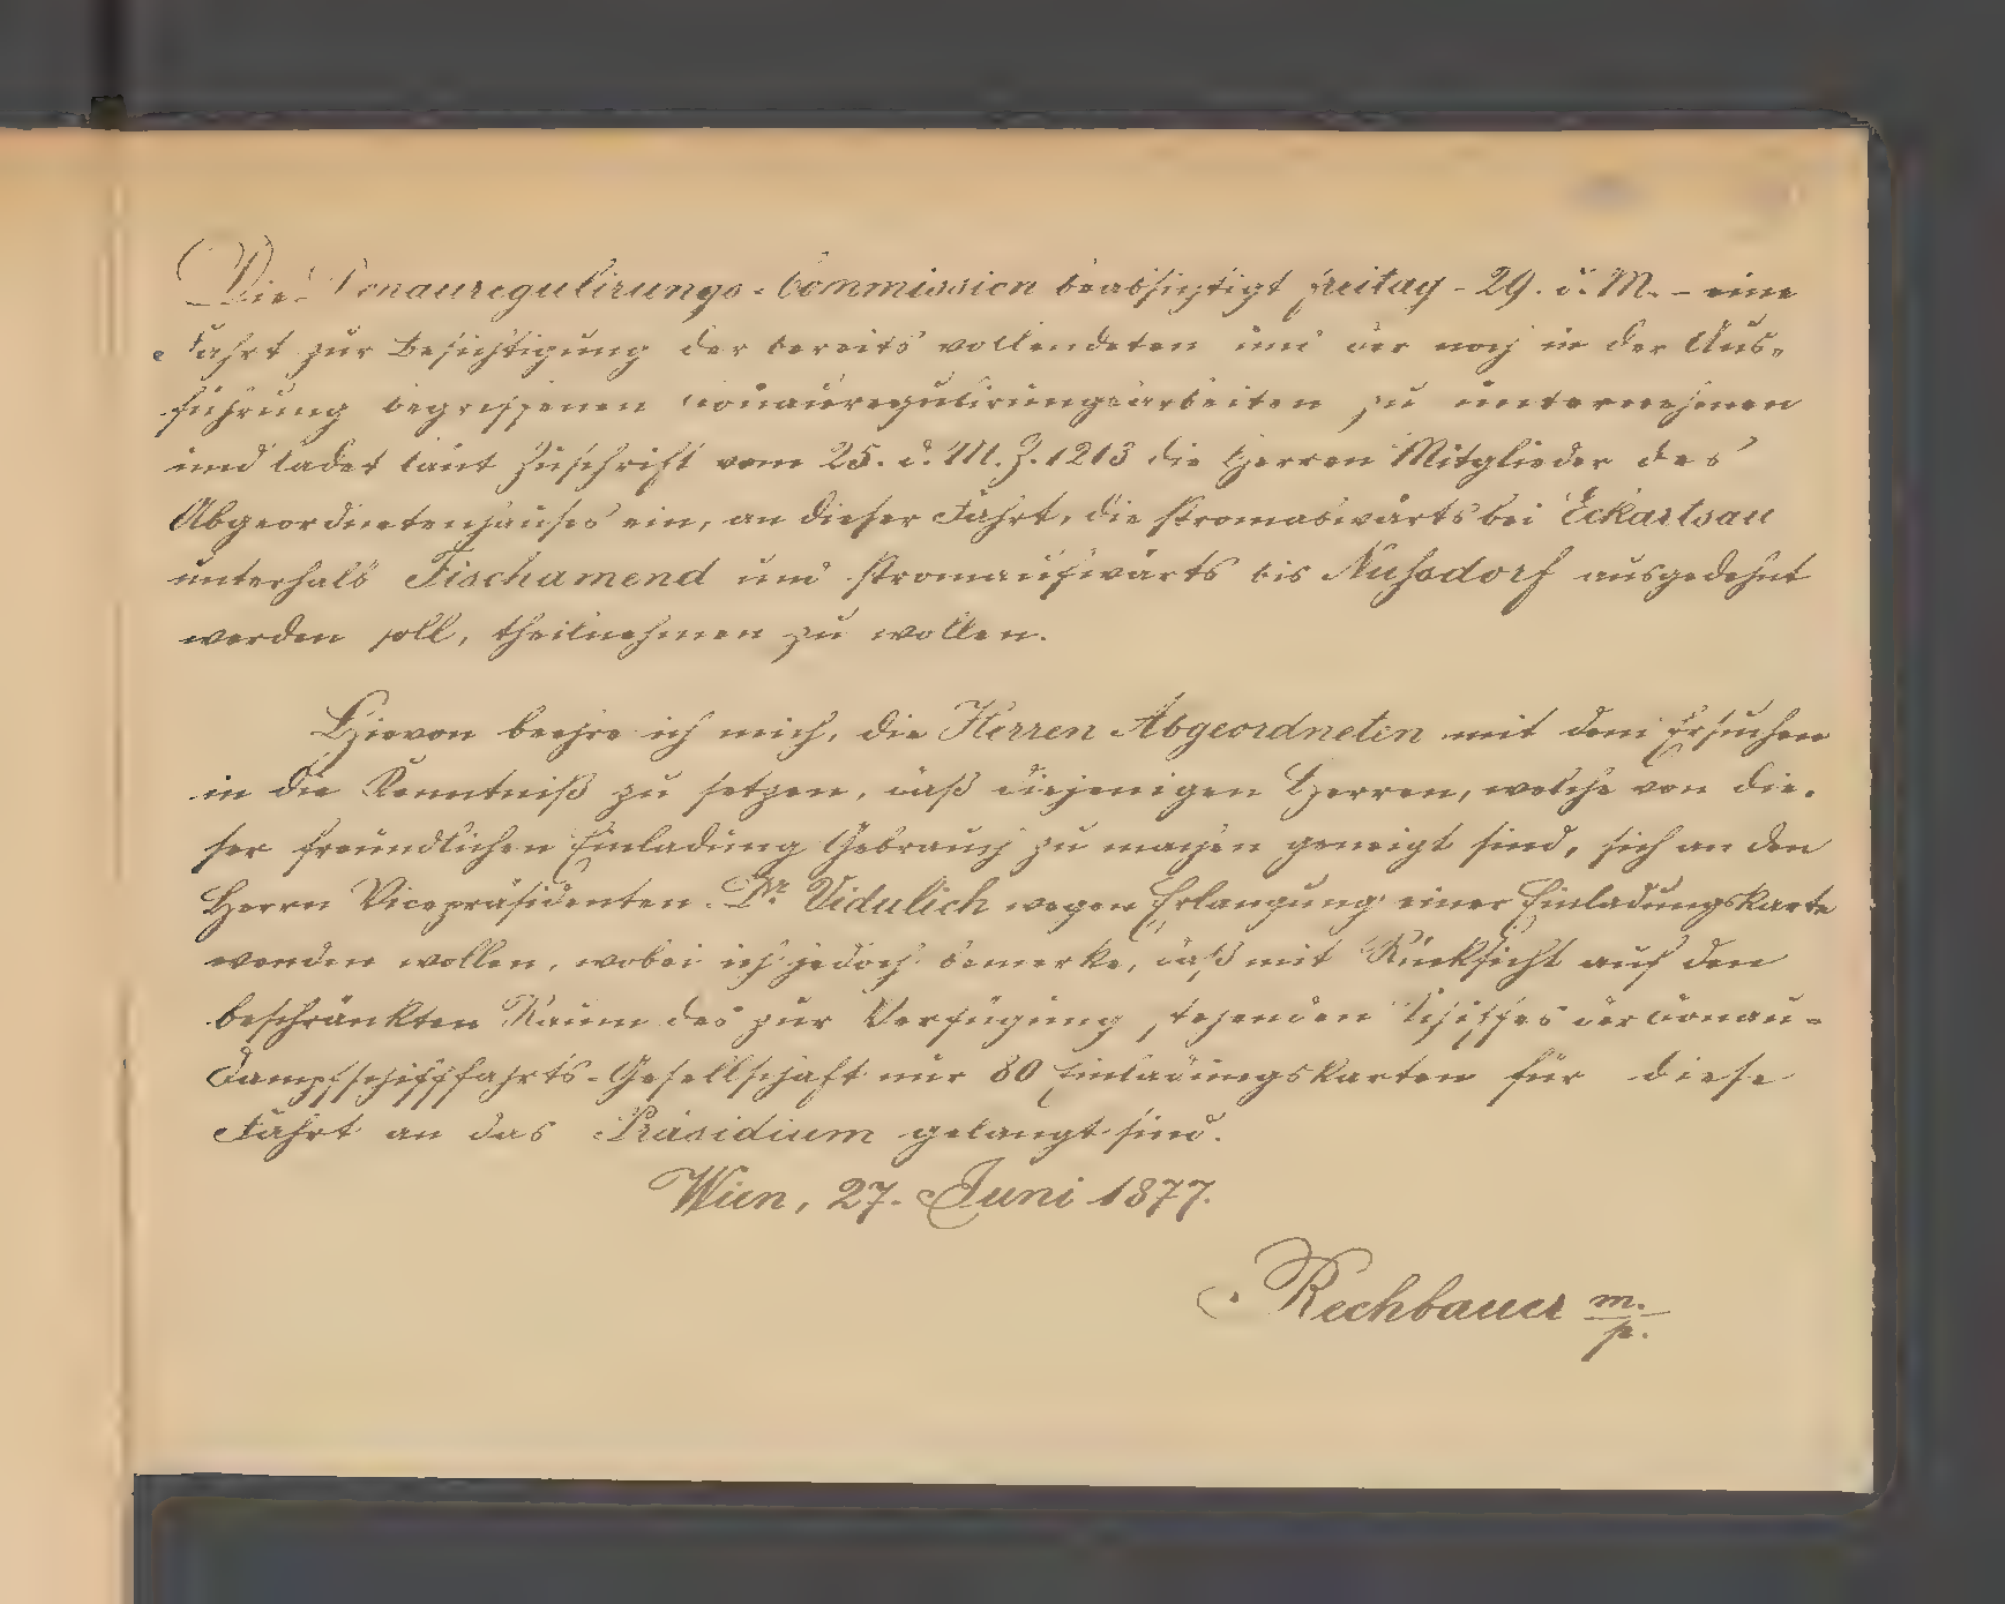 Die Donauregulirungs-Commission beabsichtigt Freitag - 29. d. M. - eine
Fahrt zur Besichtigung der bereits vollendeten und der noch in der Aus-
führung begriffenen Donauregulirungsarbeiten zu unternehmen
und ladet laut Zuschrift vom 25. d. M. Z. 1213 die Herren Mitglieder des
Abgeordnetenhauses ein, an dieser Fahrt, die stromabwärts bei Eckartsau
unterhalb Fischamend und stromaufwärts bis Nußdorf ausgedehnt
werden soll, theilnehmen zu wollen.
Hievon beehre ich mich, die Herren Abgeordneten mit dem Ersuchen
in die Kenntniß zu setzen, daß diejenigen Herren, welche von die-
ser freundlichen Einladung Gebrauch zu machen geneigt sind, sich an den
Herrn Vicepräsidenten Dr. Vidulich wegen Erlangung einer Einladungskarte
wenden wollen, wobei ich jedoch bemerke, daß mit Rücksicht auf den
beschränkten Raum des zur Verfügung stehenden Schiffes der Donau-
Dampfschifffahrts-Gesellschaft nur 80 Einladungskarten für diese
Fahrt an das Präsidium gelangt sind.
Wien, 27. Juni 1877.
Rechbauer m.
p.